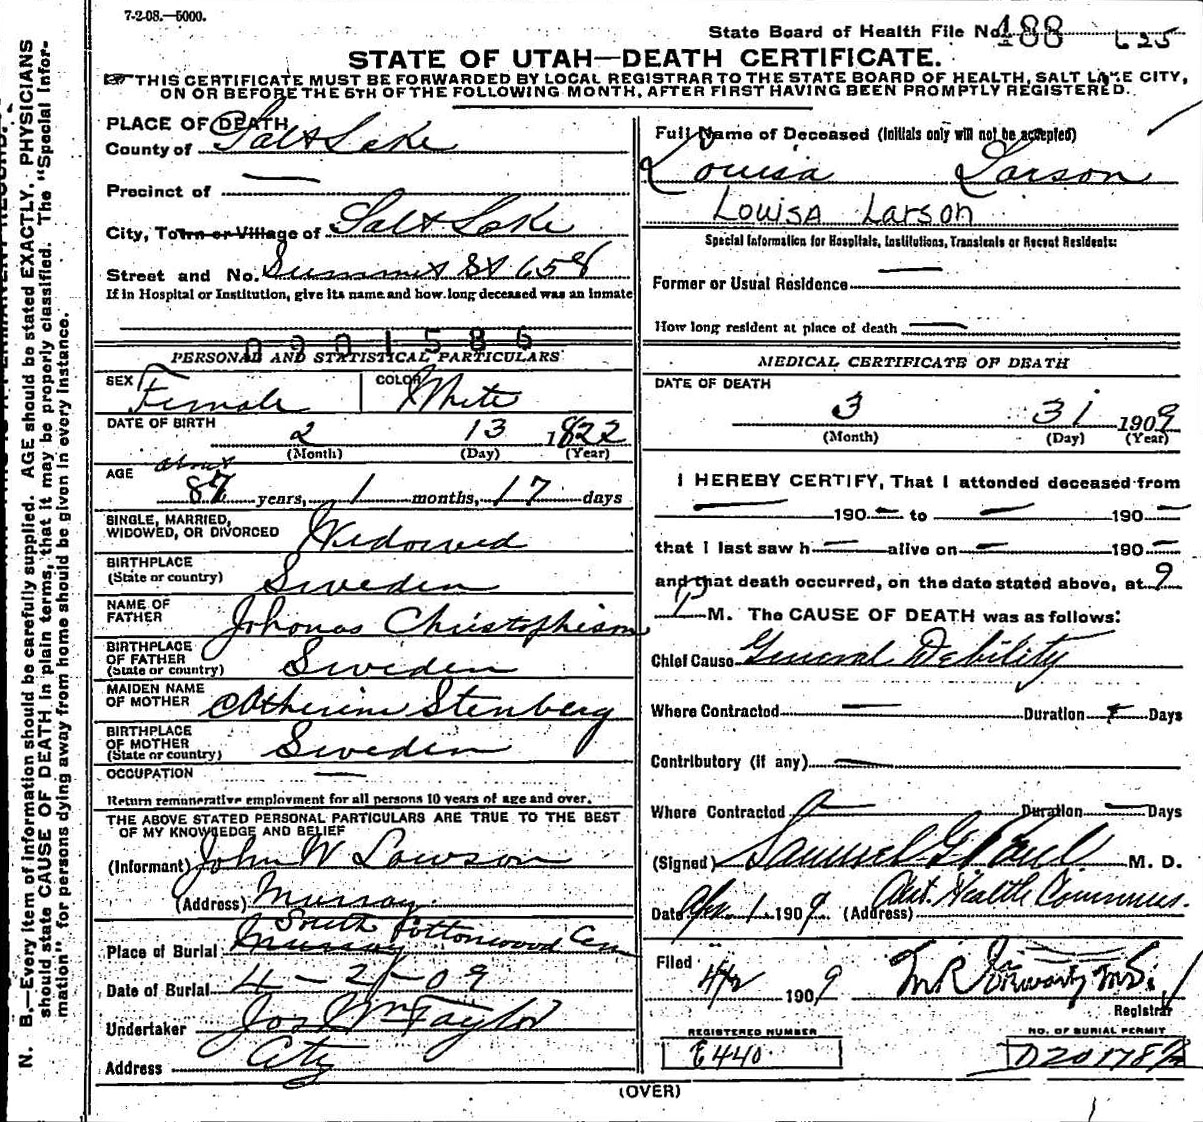 7-2-08.—5000.
State Board of Health File No. 488 625
STATE OF UTAH—DEATH CERTIFICATE.
THIS CERTIFICATE MUST BE FORWARDED BY LOCAL REGISTRAR TO THE STATE BOARD OF HEALTH, SALT LAKE CITY,
ON OR BEFORE THE 5TH OF THE FOLLOWING MONTH, AFTER FIRST HAVING BEEN PROMPTLY REGISTERED.
N. B.—Every item of information should be carefully supplied. AGE should be stated EXACTLY. PHYSICIANS
should state CAUSE OF DEATH in plain terms, that it may be properly classified. The "Special Infor-
mation" for persons dying away from home should be given in every instance.
PLACE OF DEATH
County of Salt Lake
Precinct of —
City, Town or Village of Salt Lake
Street and No. Summit St 658
If in Hospital or Institution, give its name and how long deceased was an inmate
0901586
PERSONAL AND STATISTICAL PARTICULARS
SEX Female COLOR White
DATE OF BIRTH 2 13 1822
(Month) (Day) (Year)
AGE 87 years, 1 months, 17 days
SINGLE, MARRIED,
WIDOWED, OR DIVORCED Widowed
BIRTHPLACE
(State or country) Sweden
NAME OF
FATHER Johonas
BIRTHPLACE
OF FATHER
(State or country) Sweden
MAIDEN NAME
OF MOTHER Catherine Stenberg
BIRTHPLACE
OF MOTHER
(State or country) Sweden
OCCUPATION —
Return remunerative employment for all persons 10 years of age and over.
THE ABOVE STATED PERSONAL PARTICULARS ARE TRUE TO THE BEST
OF MY KNOWLEDGE AND BELIEF
(Informant) John W Lawson
(Address) Murray
South Cottonwood Cem
Place of Burial Murray
Date of Burial 4-2-09
Undertaker Jos Wm Taylor
Address City
Full Name of Deceased (Initials only will not be accepted)
Louisa Larson
Louisa Larson
Special Information for Hospitals, Institutions, Transients or Recent Residents:
Former or Usual Residence —
How long resident at place of death —
MEDICAL CERTIFICATE OF DEATH
DATE OF DEATH
3 31 1909
(Month) (Day) (Year)
I HEREBY CERTIFY, That I attonded deceased from
— 190 — to — 190 —
that I last saw h — alive on — 190 —
and that death occurred, on the date stated above, at 9
P M. The CAUSE OF DEATH was as follows:
Chief Cause General Debility
Where Contracted — Duration — Days
Contributory (if any) —
Where Contracted — Duration — Days
(Signed) Samuel G Paul M. D.
Date Apr. 1. 1909. (Address) Asst. Health Commiss.
Filed 4/2 1909
Registrar
REGISTERED NUMBER
E440
NO. OF BURIAL PERMIT
D20178
(OVER)